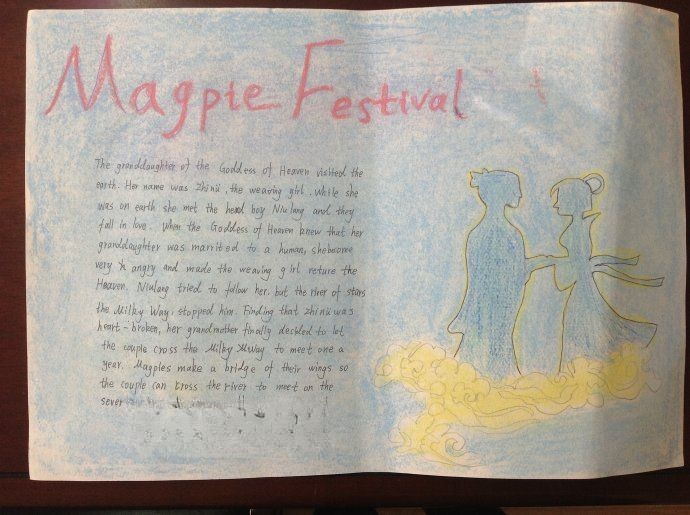 Magpie Festival
The granddaughter of the Goddess of Heaven visited the
earth. Her name was Zhinü, the weaving girl. While she
was on earth she met the head boy Niulang and they
fall in love. When the Goddess of Heaven knew that her
granddaughter was married to a human, shebecome
very angry and made the weaving girl reture the
Heaven. Niulang tried to follow her. but the river of stars
the Milky Way, stopped him. Finding that zhinü was
heart-broken, her grandmother finally decided to let
the couple cross the Milky Way to meet one a
year. Magpies make a bridge of their wings so
the couple can cross the river to meet on the
sever